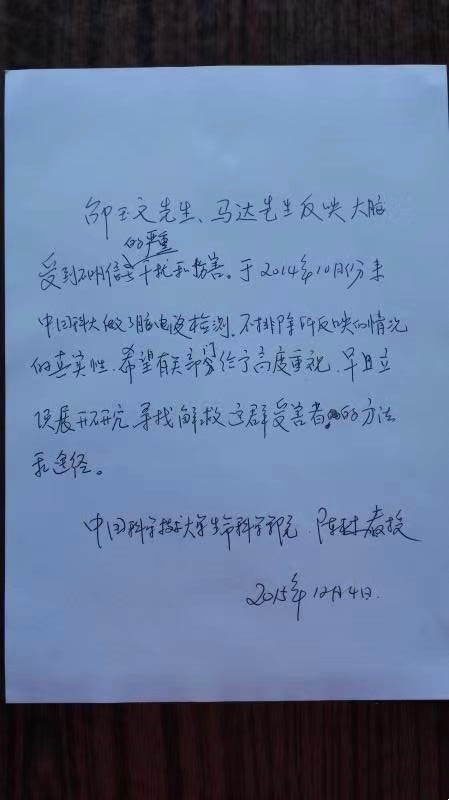 邵玉文先生、马达先生反映大脑
受到不明信号的严重干扰和损害。于2014年10月份来
中国科大做了脑电波检测。不排除所反映的情况
的真实性。希望有关部门给予高度重视，早日立
项展开研究，寻找解救这群受害者的方法
和途径。
中国科学技术大学生命科学学院 陈林教授
2015年12月4日